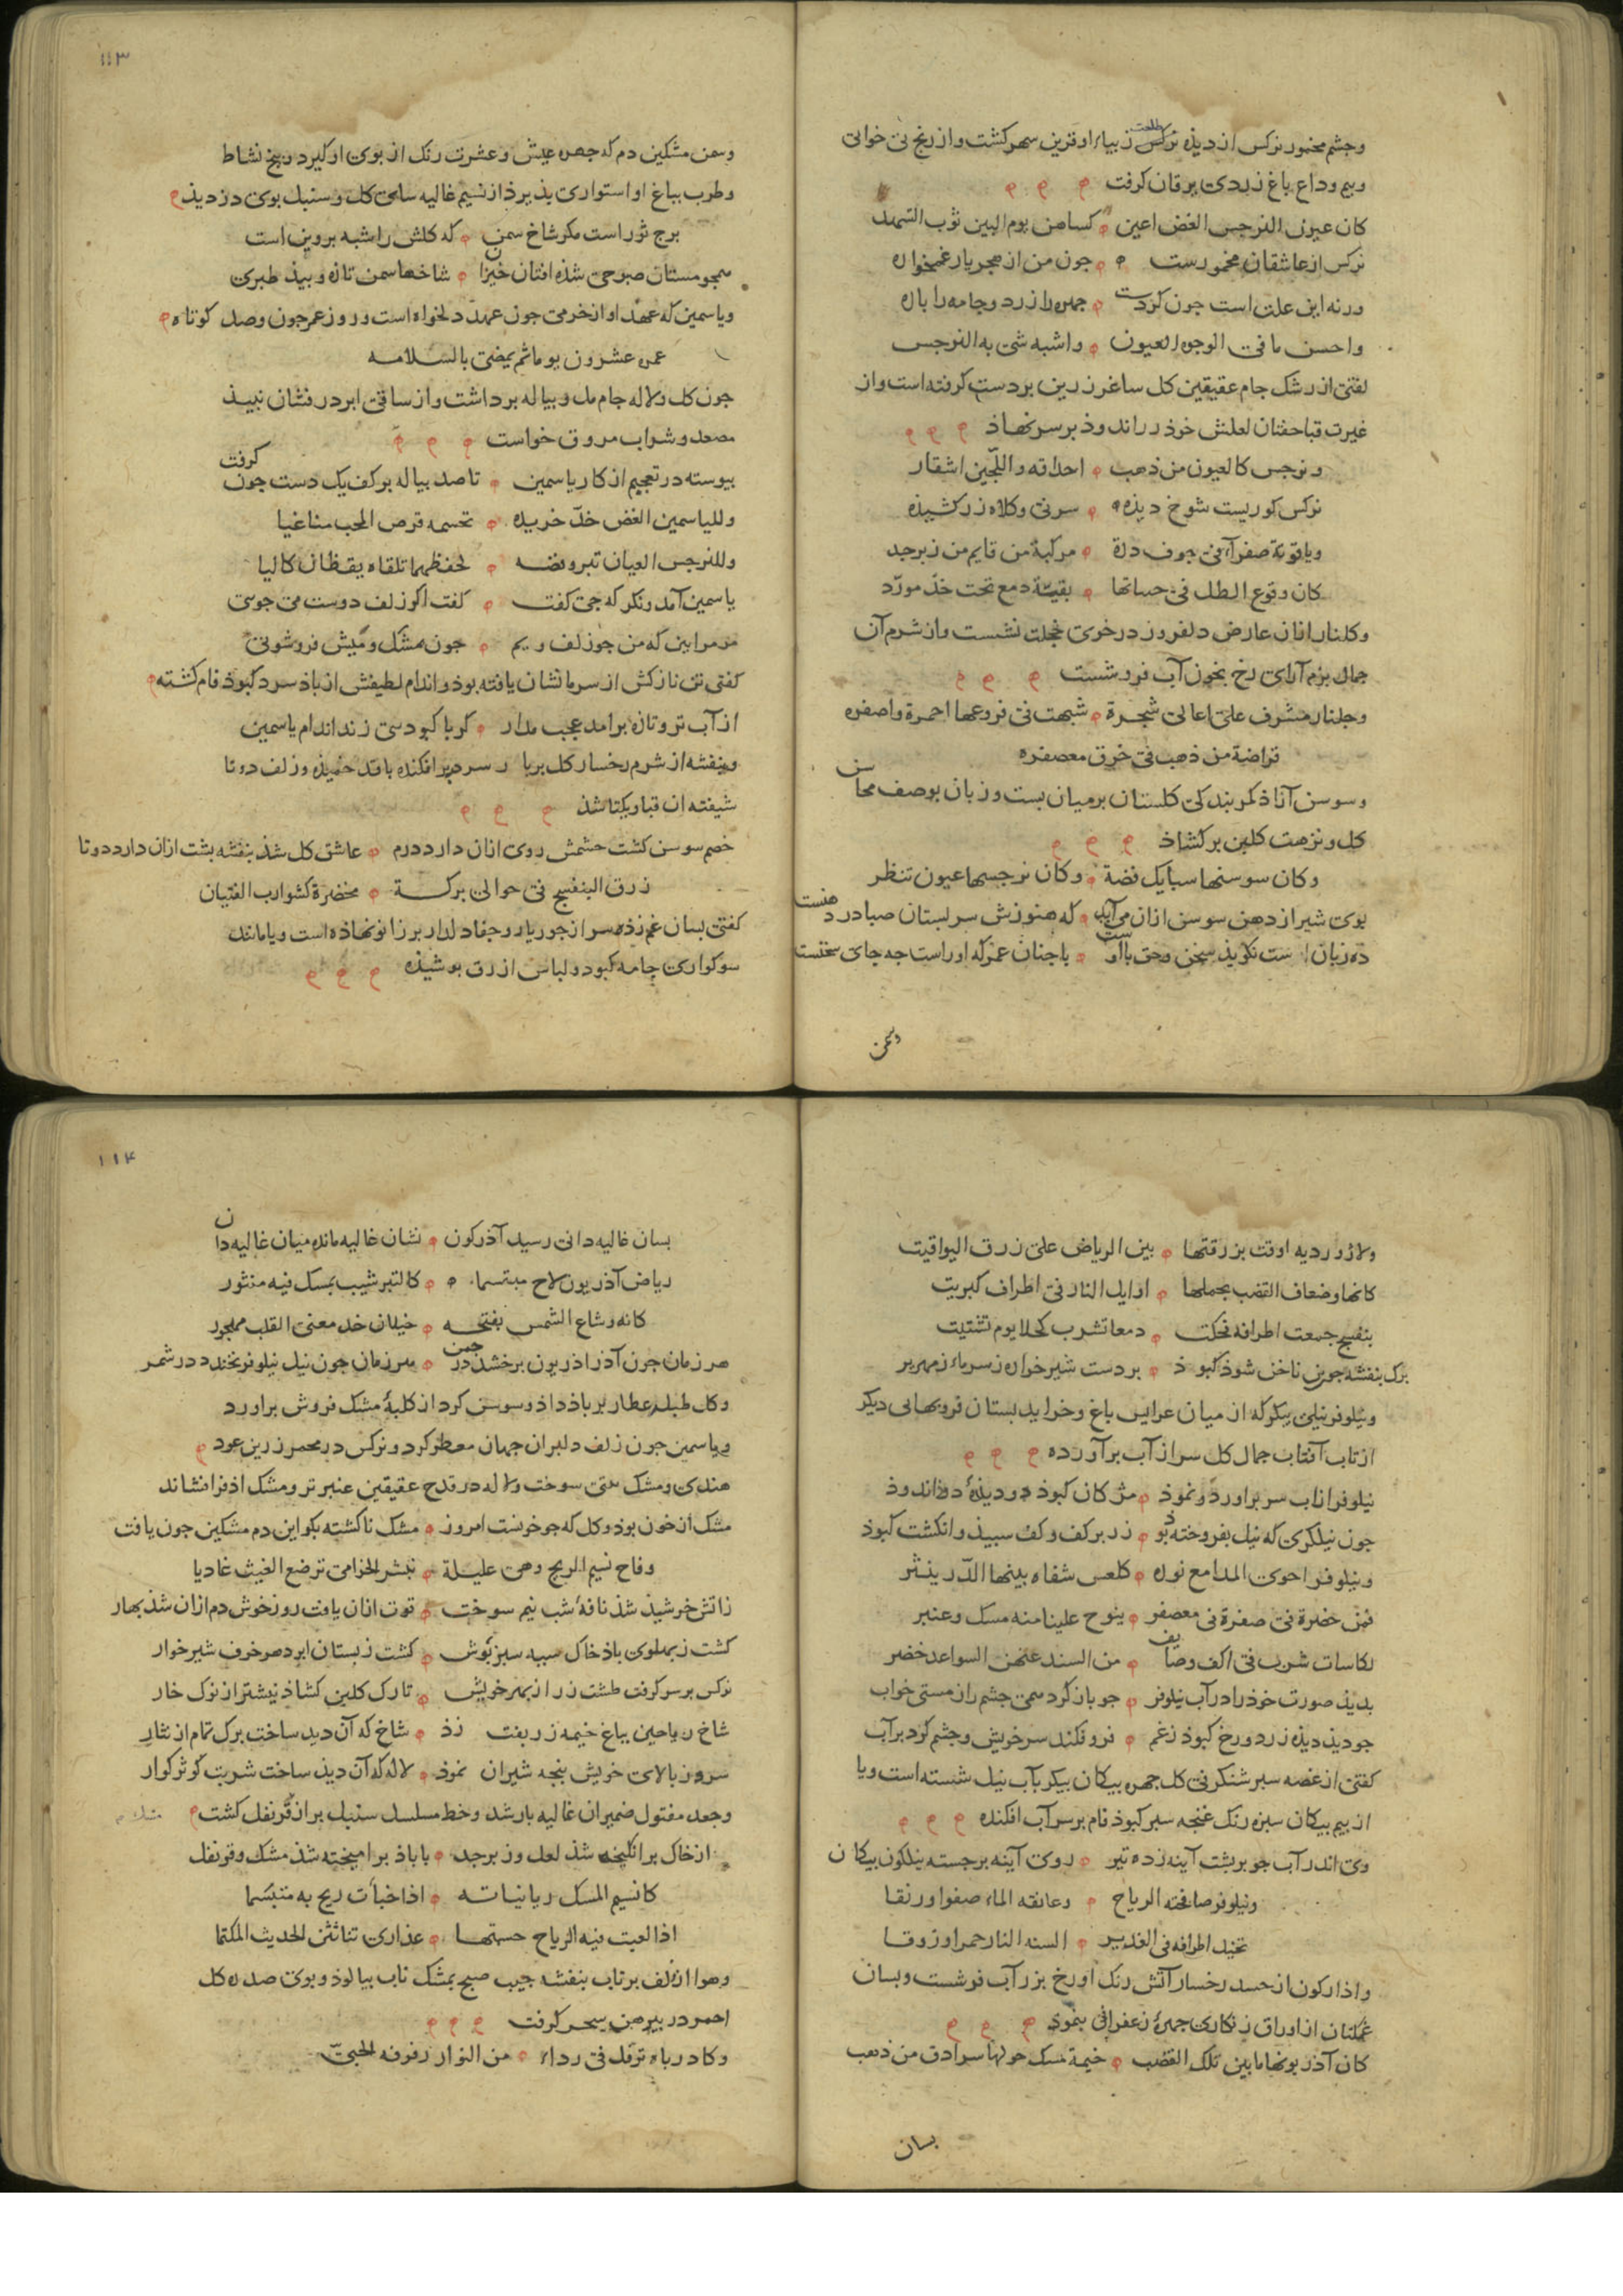 وجشم مخمور نرکس از دیذه نرکس طلعت زیباء او قرین سهر کشت و از رنج بی خوابی
و بیم وداع باغ زبدی یرقان کرفت
کان عیون النرجس الغض اعین کساهن یوم البین ثوب التسهد
نرکس از عاشقان مخمورست جون من از هجر یار غمخواره
ورنه این علت است جون کردست جهره را زرد و جامه را باره
واحسن ما فی الوجوه العیون واشبه شی به النرجس
لفتی از رشک جام عقیقین کل ساغر زرین بر دست کرفته است واز
غیرت قبا لعلش خوذ زراندوذ بر سر نهاذ
ونرجس کالعیون من ذهب احداقه واللجین اشفار
نرکس کوریست شوخ دیذه سرنی و کلاه زر کشیذه
ویاقوتة صفراء فی جوف درة مرکبة من قایم من زبرجد
کان وقوع الطل فی حساتها بقیة دمع تحت خد مورد
وکلنار ازان عارض دلفروز در خوی خجلت نشست واز شرم آن
جمال بزم آرای رخ بخون آب فرو شست
وجلنار مشرف علی اعالی شجرة شبهت فی فروعها احمرة واصفره
قراضة من ذهب فی خرق معصفره
وسوسن آزاذ کمر بندکی کلستان بر میان بست وزبان بوصف محاسن
کل ونزهت کلبن برکشاذ
وکان سوسنها سبایک فضة وکان نرجسها عیون تنظر
بوی شیر از دهن سوسن ازان می آید که هنوزش سر بستان صبا در دهنست
ده زبان است نکویذ سخن وحق با اوست با جنان عمر که اوراست جه جای سخنست
وسمن
۱۱۳
وسمن مشکین دم که جهره عیش وعشرت رنک از بوی او کیرد وبیخ نشاط
وطرب بباغ او استواری بذیرذ از نسیم غالیه سای کل وسنبل بوی دزدیذ
برج ثور است مکر شاخ سمن که کلش را شبه بروین است
همجو مستان صبوحی شذه افتان خیزان شاخها سمن تازه وبیذ طبری
ویاسمین که عهد او از خرمی جون عهد دلخواه است وروز عمر جون وصل کوتاه
عمره عشرون یوما ثم یمضی بالسلامه
جون کل ولاله جام مل وبیاله برداشت واز ساقی ابر درفشان نبیذ
مصعد وشراب مروق خواست
بیوسته در تعجبم از کار یاسمین تا صد بیاله بر کف یک دست جون کرفت
وللیاسمین الغض خد خریده تحسبه قرص المحب مناغیا
وللنرجس العیان تبر وفضه لحفظهما تلقاه یقظان کالیا
یاسمین آمد ونکر که جی کفت کفت اکر زلف دوست می جوئی
مر مرا بین که من جو زلف ویم جون مشک ومیش فروشوئی
کفتی تن نازکش از سرما نشان یافته بوذ واندام لطیفش از باذ سرد کبوذ فام کشته
از آب تر وتازه برامد عجب مدار کر با کبودی زند اندام یاسمین
وبنفشه از شرم رخسار کل بربا سر دربر افکنده با قد خمیذه وزلف دوتا
شیفته ان قبا ریکتا شذ
خصم سوسن کشت حشمش روی ازان دارد درم عاشق کل شذ بنفشه بشت ازان دارد دوتا
زرق البنفسج فی حوالی برکة مخضرة کشوارب الفتیان
کفتی بسان غم زذه سر از جور یار وجفاء دلدار بر زانو نهاذه است ویا مانند
سوکواری جامه کبود ولباس ازرق بوشیذه
ولازوردیه اوفت بزرقتها بین الریاض علی زرق الیواقیت
کانها وضعاف القضب بحملها اوایل النار فی اطراف کبریت
بنفسج جمعت اطرافه فحکت دمعا تشرب کحلا یوم تشتیت
برک بنفشه جو بن ناخن شوذ کبوذ بر دست شیر خواره ز سرماء زمهریر
ونیلوفر نیلی بیکر که از میان عرایس باغ وخراید بستان فروبهایی دیکر
از تاب آفتاب جمال کل سر از آب برآورده
نیلوفر از اب سر براورد ونموذ مژکان کبوذ ودیذه زر اندوذ
جون نیلکری که نیل بفروخته بوذ زر بر کف وکف سبیذ وانکشت کبوذ
ونیلوفر احوی المدامع نوره کلعس شفاه بینها الدر ینثر
فمن خضرة فی صفرة فی معصفر ینوح علینا منه مسک وعنبر
لکاسات شرب فی اکف وصایف من السند عنهن السواعد خضر
بدیذ صورت خوذ را در آب نیلوفر جو باز کرد همی جشم را ز مستی خواب
جو دیذ دیذه زرد ورخ کبوذ ز غم فروفکند سر خویش وجشم کرد برآب
کفتی از غصه سبر شنکرفی کل جهره بیکان بیکر بآب نیل شسته است ویا
از بیم بیکان سبز رنک غنجه سبر کبوذ فام بر سر آب افکنده
وی اندر آب جو بر بشت آینه زده تیر روی آینه برجسته نیلکون بیکان
ونیلوفر صافحته الریاح وعانقه الماء صفوا ورنقا
تخیل اطرافه فی الغدیر السنة النار حمرا وزرقا
واذارکون از حسد رخسار آتش رنک او رخ بزر آب فروشست وبسان
غمکنان از اوراق زنکاری جهره زعفرانی بنموذ
کان آذریونها مابین تلک القضب خیمة مسک حولها سرادق من ذهب
بسان
۱۱۴
بسان غالیه دانی رسید آذرکون نشان غالیه مانده میان غالیه دان
ریاض آذریون لاح مبتسما کالتبر شیب بمسک فیه منثور
کانه وشاع الشمس بفتحه خیلان خد معنی القلب مهجور
هر زمان جون آذر اذریون برخشد در جمن هر زمان جون نیل نیلوفر بخندد در شمر
وکل طبله عطار بر باذ داذ وسوسن کرد از کلبه مشک فروش براورد
ویاسمین جون زلف دلبران جهان معطر کرد ونرکس در مجمر زرین عود
هندی ومشک تبتی سوخت ولاله در قدح عقیقین عنبر تر ومشک اذفر افشاند
مشک از خون بوذ وکل که جو خونست امروز مشک ناکشته بکو این دم مشکین جون یافت
وفاح نسیم الریح وهی علیلة بنشر الخزامی ترضع الغیث غادیا
زاتش خرشیذ شذ نافه شب نیم سوخت قوت ازان یافت روز خوش دم ازان شذ بهار
کشت ز بهلوی باذ خاک سیه سبز بوش کشت ز بستان ابر دهر خرف شیر خوار
نرکس بر سر کرفت طشت زر از بهر خویش تارک کلبن کشاذ نیشتر از نوک خار
شاخ ریاحین بباغ خیمه زربفت زذ شاخ که آن دید ساخت برک تمام از نثار
سرو ز بالای خویش بنجه شیران نموذ لاله که آن دیذ ساخت شربت کوثر کوار
وجعد مفتول ضمیران غالیه بار شد وخط مسلسل سنبل بر از قرنفل کشت
از خاک برانکیخته شذ لعل وزبرجد با باذ برامیخته شذ مشک وقرنفل
کانسیم المسک ریا نباته اذا خبأت ریح به متبسما
اذا لعبت فیه الریاح حسبتها عذاری تناثثن الحدیث المکتما
وهوا از زلف برتاب بنفشه جیب صبح بمشک ناب بیالوذ وبوی صد ره کل
احمر در بیرهن سحر کرفت
وکاد رباه ترفل فی رداء من النوار رفوفه الحبی